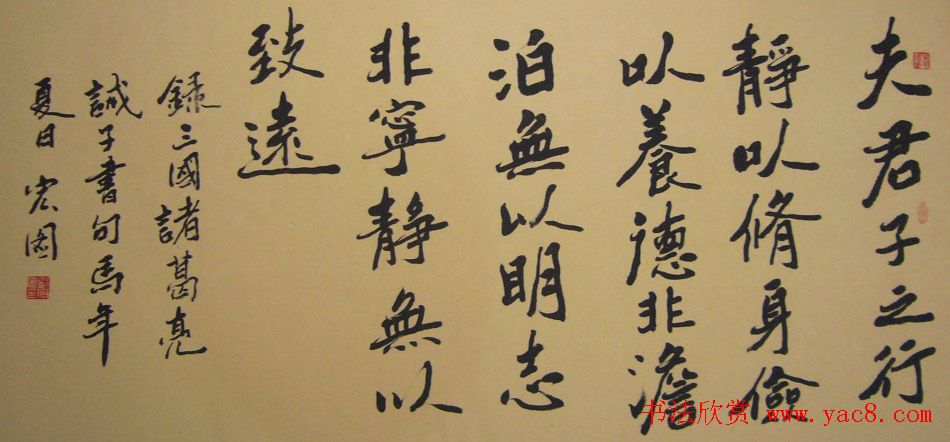 夫君子之行
靜以脩身儉
以養德非澹
泊無以明志
非寧靜無以
致遠
録三國諸葛亮
誡子書句馬年
夏日 宏圖
书法欣赏 www.yac8.com